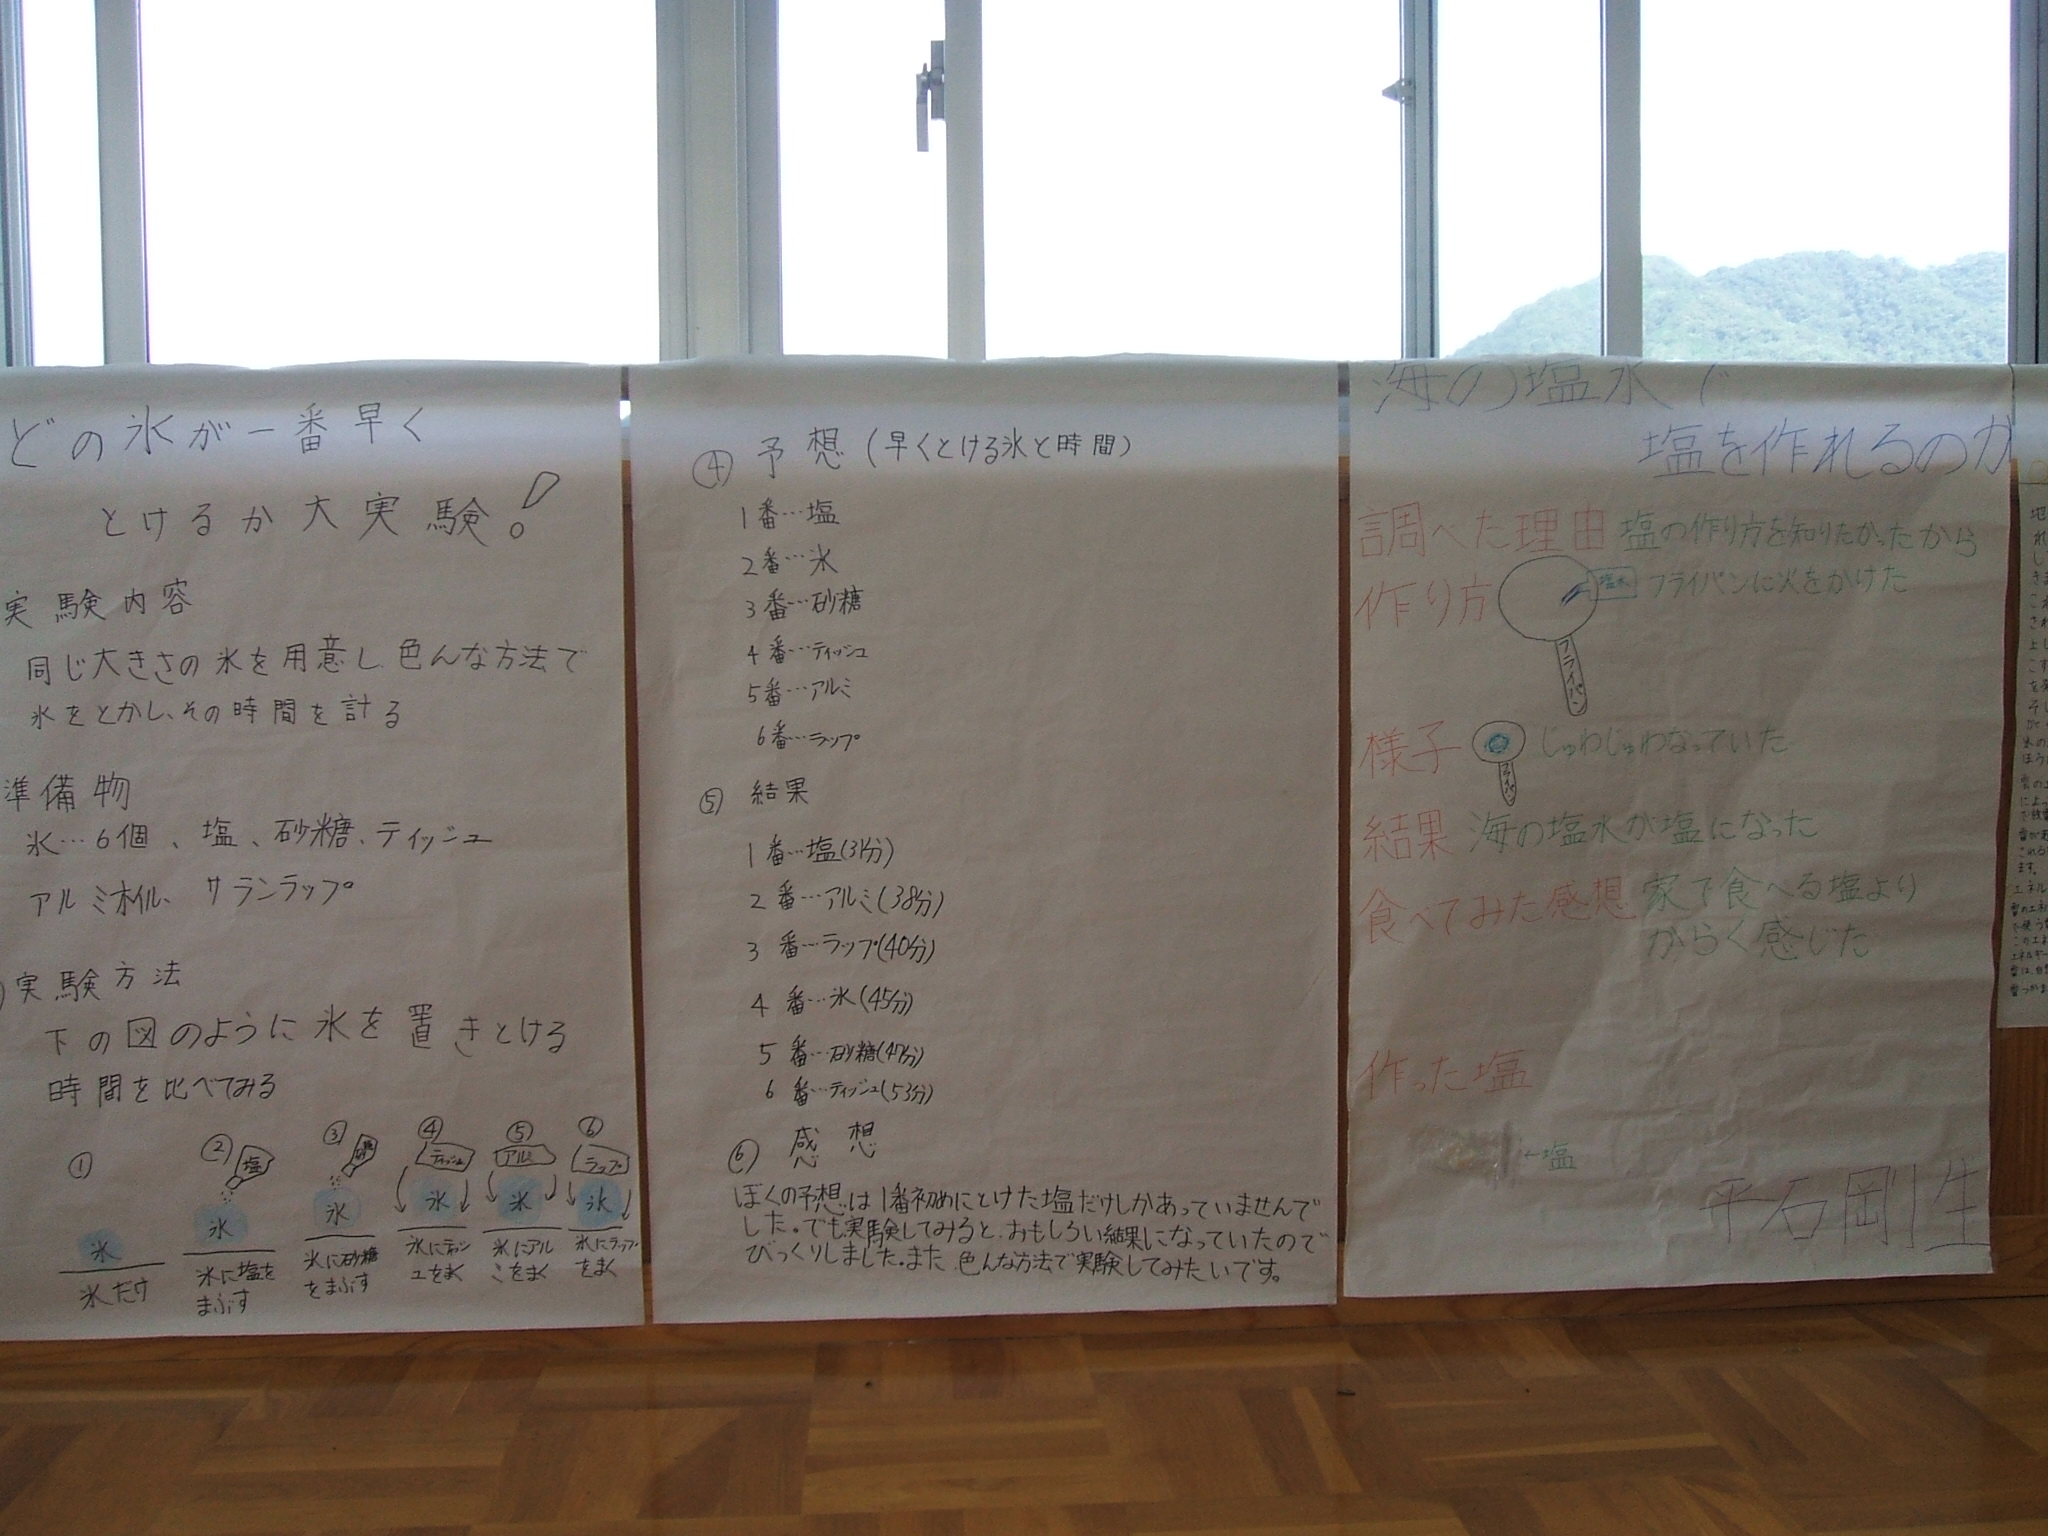 どの氷が一番早く
とけるか大実験!
実験内容
同じ大きさの氷を用意し、色んな方法で
氷をとかし、その時間を計る
準備物
氷…6個、塩、砂糖、ティッシュ
アルミホイル、サランラップ
実験方法
下の図のように氷を置きとける
時間を比べてみる
①
氷
氷だけ
②
塩
氷
氷に塩を
まぶす
③
氷
氷に砂糖
をまぶす
④
ティッシュ
氷
氷にティッシ
ュをまく
⑤
アルミ
氷
氷にアル
ミをまく
⑥
ラップ
氷
氷にラップ
をまく
④ 予想(早くとける氷と時間)
1番…塩
2番…氷
3番…砂糖
4番…ティッシュ
5番…アルミ
6番…ラップ
⑤ 結果
1番…塩(31分)
2番…アルミ(38分)
3番…ラップ(40分)
4番…氷(45分)
5番…砂糖(47分)
6番…ティッシュ(53分)
⑥ 感想
ぼくの予想は1番初めにとけた塩だけしかあっていませんで
した。でも実験してみると、おもしろい結果になっていたので
びっくりしました。また、色んな方法で実験してみたいです。
海の塩水で
塩を作れるのか
調べた理由 塩の作り方を知りたかったから
作り方 塩水 フライパンに火をかけた
フライパン
様子 じゅわじゅわなっていた
フライパン
結果 海の塩水が塩になった
食べてみた感想 家で食べる塩より
からく感じた
作った塩
←塩
平石剛生